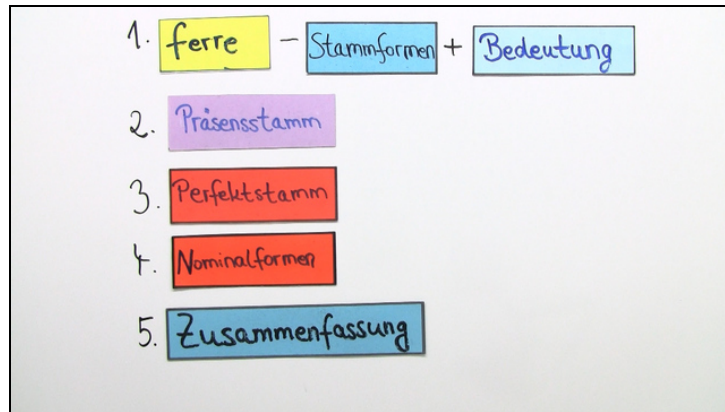 1. ferre - Stammformen + Bedeutung
2. Präsensstamm
3. Perfektstamm
4. Nominalformen
5. Zusammenfassung